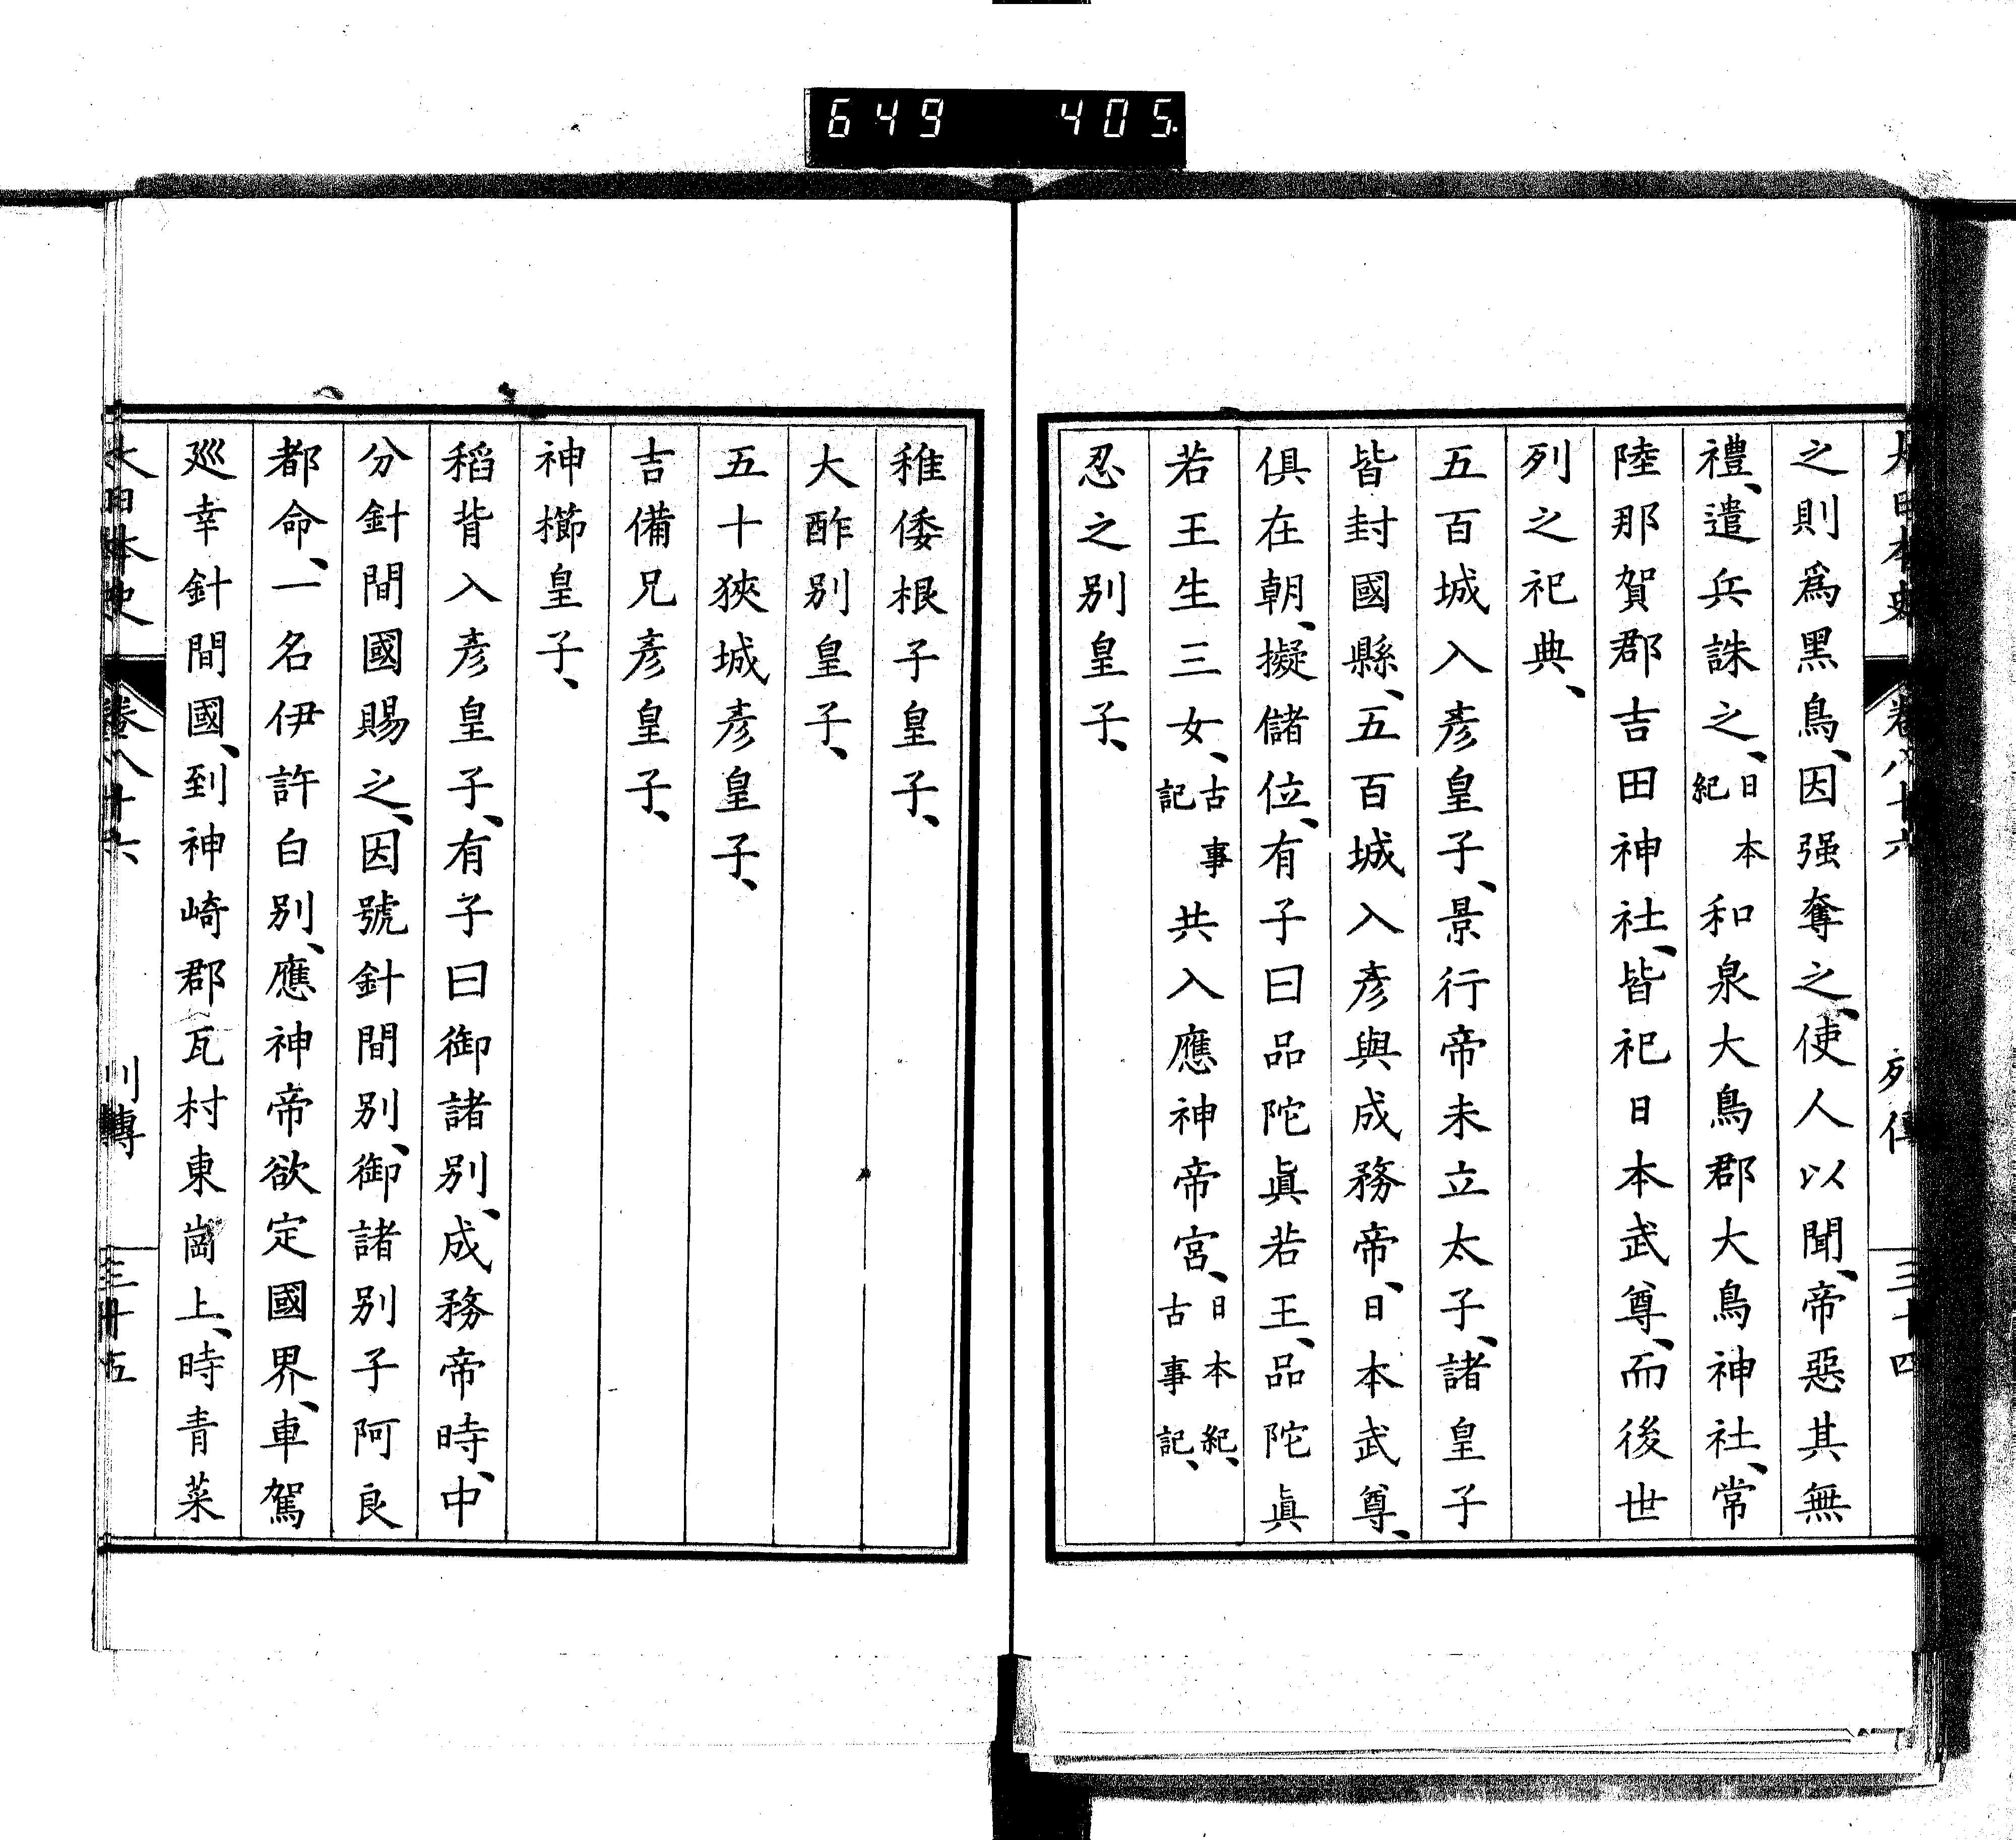 649 405.
大日本史 卷八十六 列傳 三十四
之則爲黑鳥、因强奪之、使人以聞、帝惡其無
禮、遣兵誅之、日本紀 和泉大鳥郡大鳥神社、常
陸那賀郡吉田神社、皆祀日本武尊、而後世
列之祀典、
五百城入彥皇子、景行帝未立太子、諸皇子
皆封國縣、五百城入彥與成務帝、日本武尊、
俱在朝、擬儲位、有子曰品陀眞若王、品陀眞
若王生三女、古事記 共入應神帝宮、日本紀、古事記、
忍之別皇子、
稚倭根子皇子、
大酢別皇子、
五十狹城彥皇子、
吉備兄彥皇子、
神櫛皇子、
稻背入彥皇子、有子曰御諸別、成務帝時、中
分針間國賜之、因號針間別、御諸別子阿良
都命、一名伊許白別、應神帝欲定國界、車駕
巡幸針間國、到神崎郡瓦村東崗上、時青菜
大日本史 卷八十六 列傳 三十五